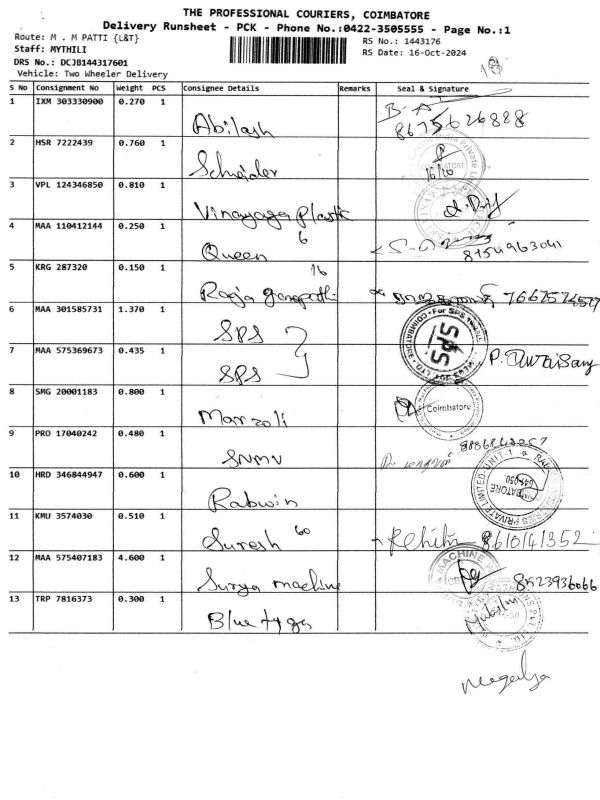 THE PROFESSIONAL COURIERS, COIMBATORE
Delivery Runsheet - PCK - Phone No.:0422-3505555 - Page No.:1
Route: M . M PATTI {L&T}
RS No.: 1443176
Staff: MYTHILI
RS Date: 16-Oct-2024
DRS No.: DCJB144317601
Vehicle: Two Wheeler Delivery
S No Consignment No Weight PCS Consignee Details Remarks Seal & Signature
1 IXM 303330900 0.270 1 Abilash B-A 8675626888
2 HSR 7222439 0.760 1 Schneider 16/20
3 VPL 124346850 0.810 1 Vinayaga Plastic
4 MAA 110412144 0.250 1 Queen 6 8754963041
5 KRG 287320 0.150 1 Raja ganapathi 16
6 MAA 301585731 1.370 1 SPS
7 MAA 575369673 0.435 1 SPS
8 SMG 20001183 0.800 1 Marzoli Coimbatore
9 PRO 17040242 0.480 1 SNMV
10 HRD 346844947 0.600 1 Rabwin
11 KMU 3574030 0.510 1 Suresh 60 8610141352
12 MAA 575407183 4.600 1 Surya machine 8523936066
13 TRP 7816373 0.300 1 Blue tyga